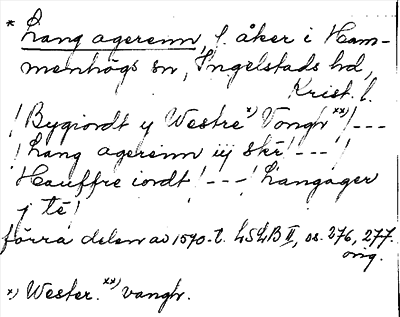 * Lang agerenn, f. åker i Ham-
menhögs sn, Ingelstads hd,
Krist. l.
/ Bygiordt y Westre *) Vongh **) / ---
/ Lang agerenn iij skr / --- /
Hauffre iordt / --- / Langager
j te /
förra delen av 1570-t. LSLB II, ss. 276, 277.
orig.
*) Wester. **) vangh.